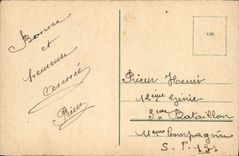 Bonne
et
heureuse
année
Prieur
Prieur Henri
12ème Génie
5ème Bataillon
11eme Compagnie
S. P.